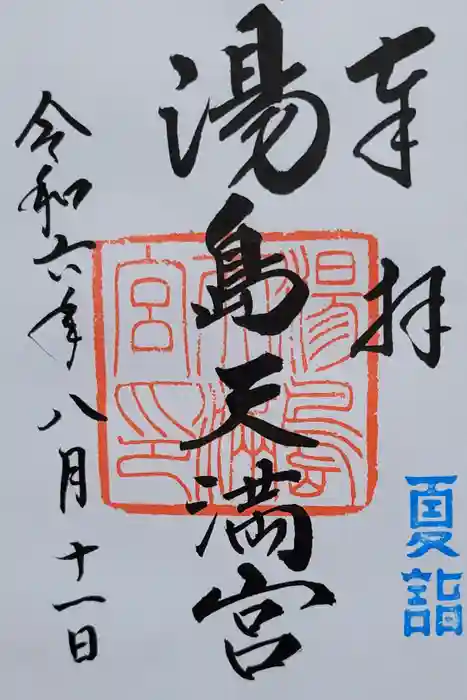 奉拝
夏詣
湯島天満宮
湯島天満宮印
令和六年八月十一日